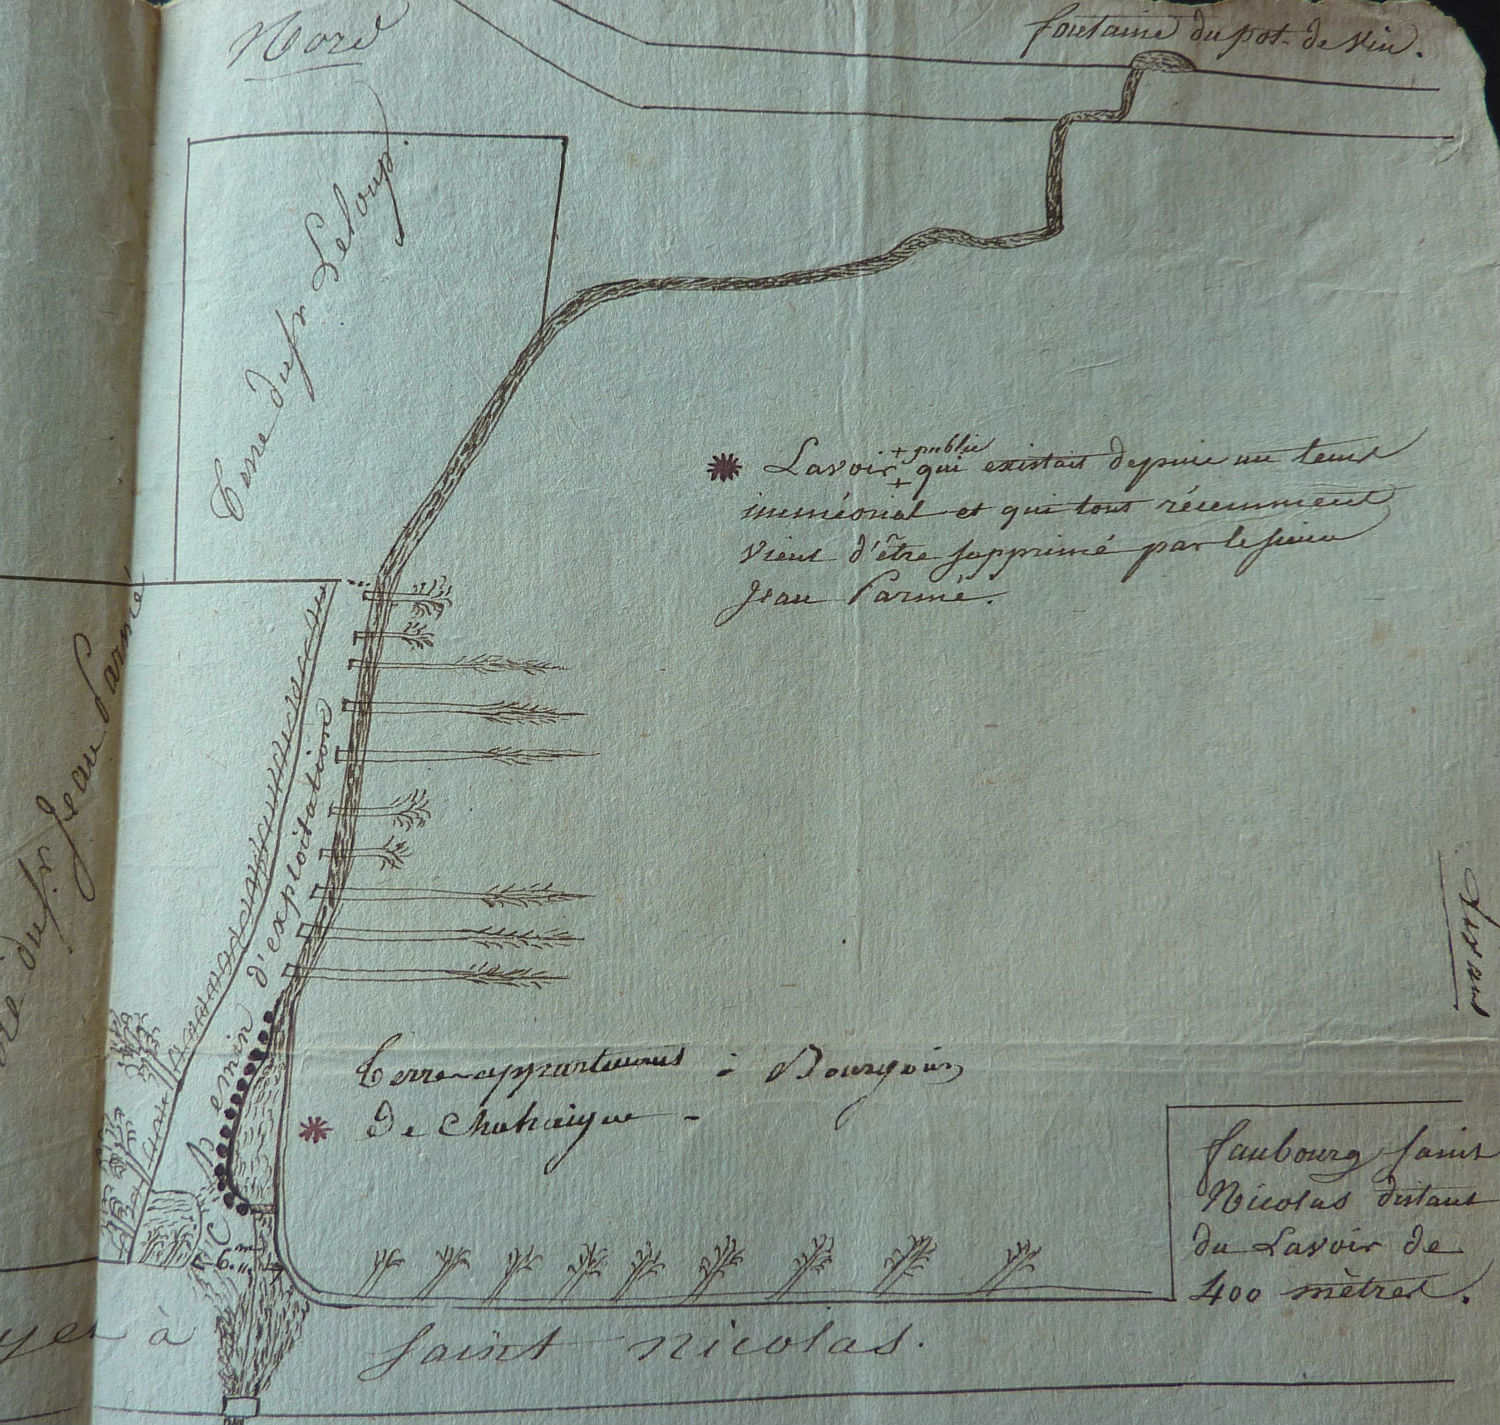 Nord
fontaine du pot de vin.
Terre du sr Leloup.
Lavoir + public qui existait depuis un tems
immémorial et qui tout récemment
vient d'être supprimé par le sieur
Jean Parmé.
du sr Jean Parmé
Chemin d'exploitation
Terre appartenant à Bourgoin
de Chahaigne
Faubourg Saint
Nicolas distant
du Lavoir de
400 mètres.
6. m
à Saint Nicolas.